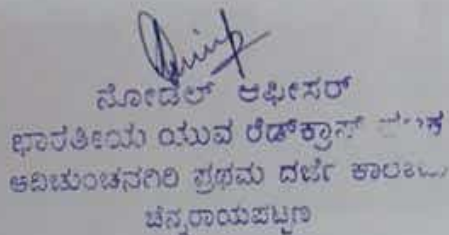 ನೋಡೆಲ್ ಆಫೀಸರ್
ಭಾರತೀಯ ಯುವ ರೆಡ್‌ಕ್ರಾಸ್
ಆದಿಚುಂಚನಗಿರಿ ಪ್ರಥಮ ದರ್ಜೆ
ಚನ್ನರಾಯಪಟ್ಟಣ